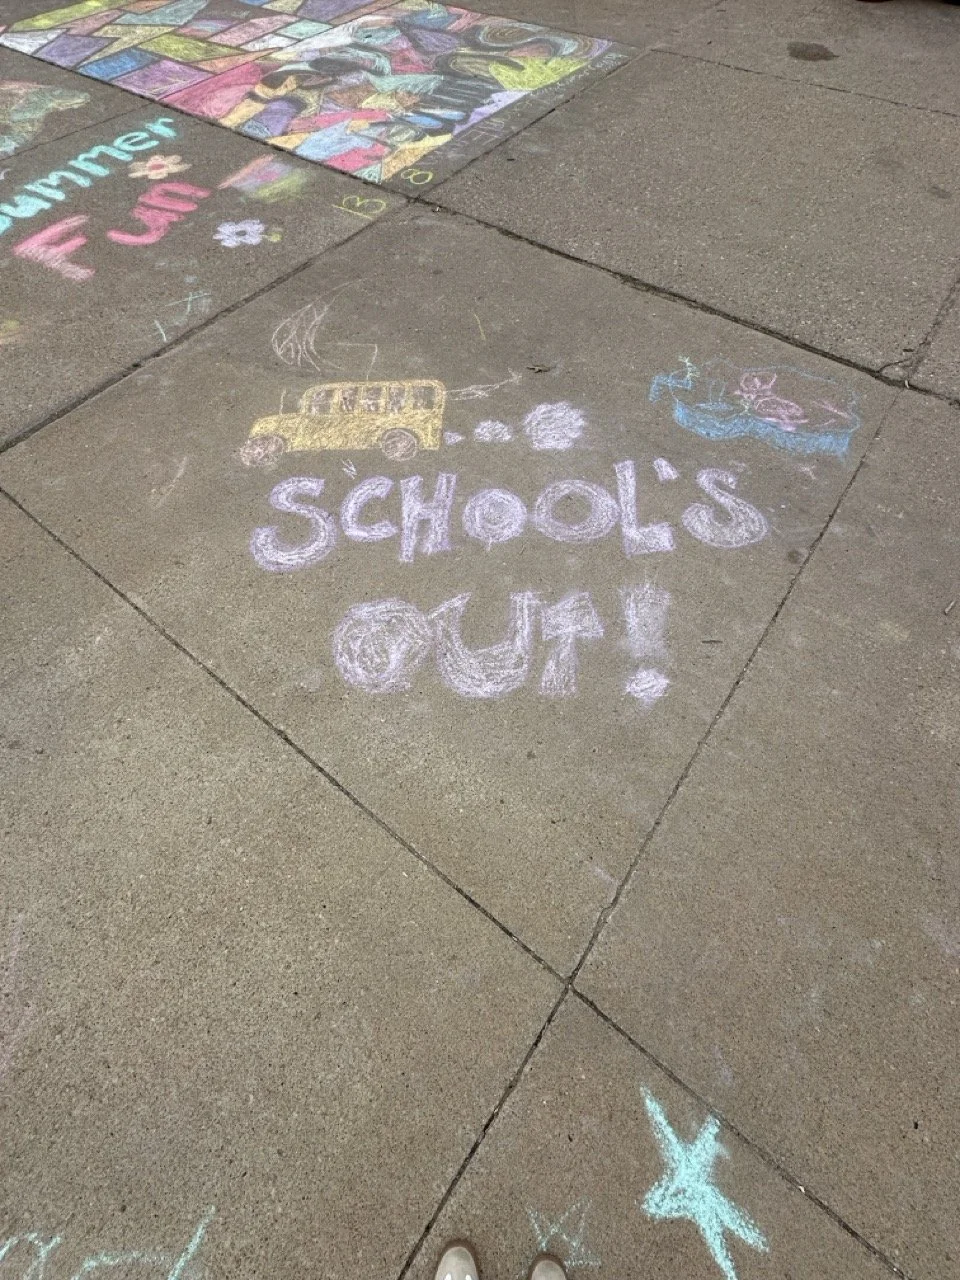 Summer
Fun
13
8
SCHOOL'S
OUT!